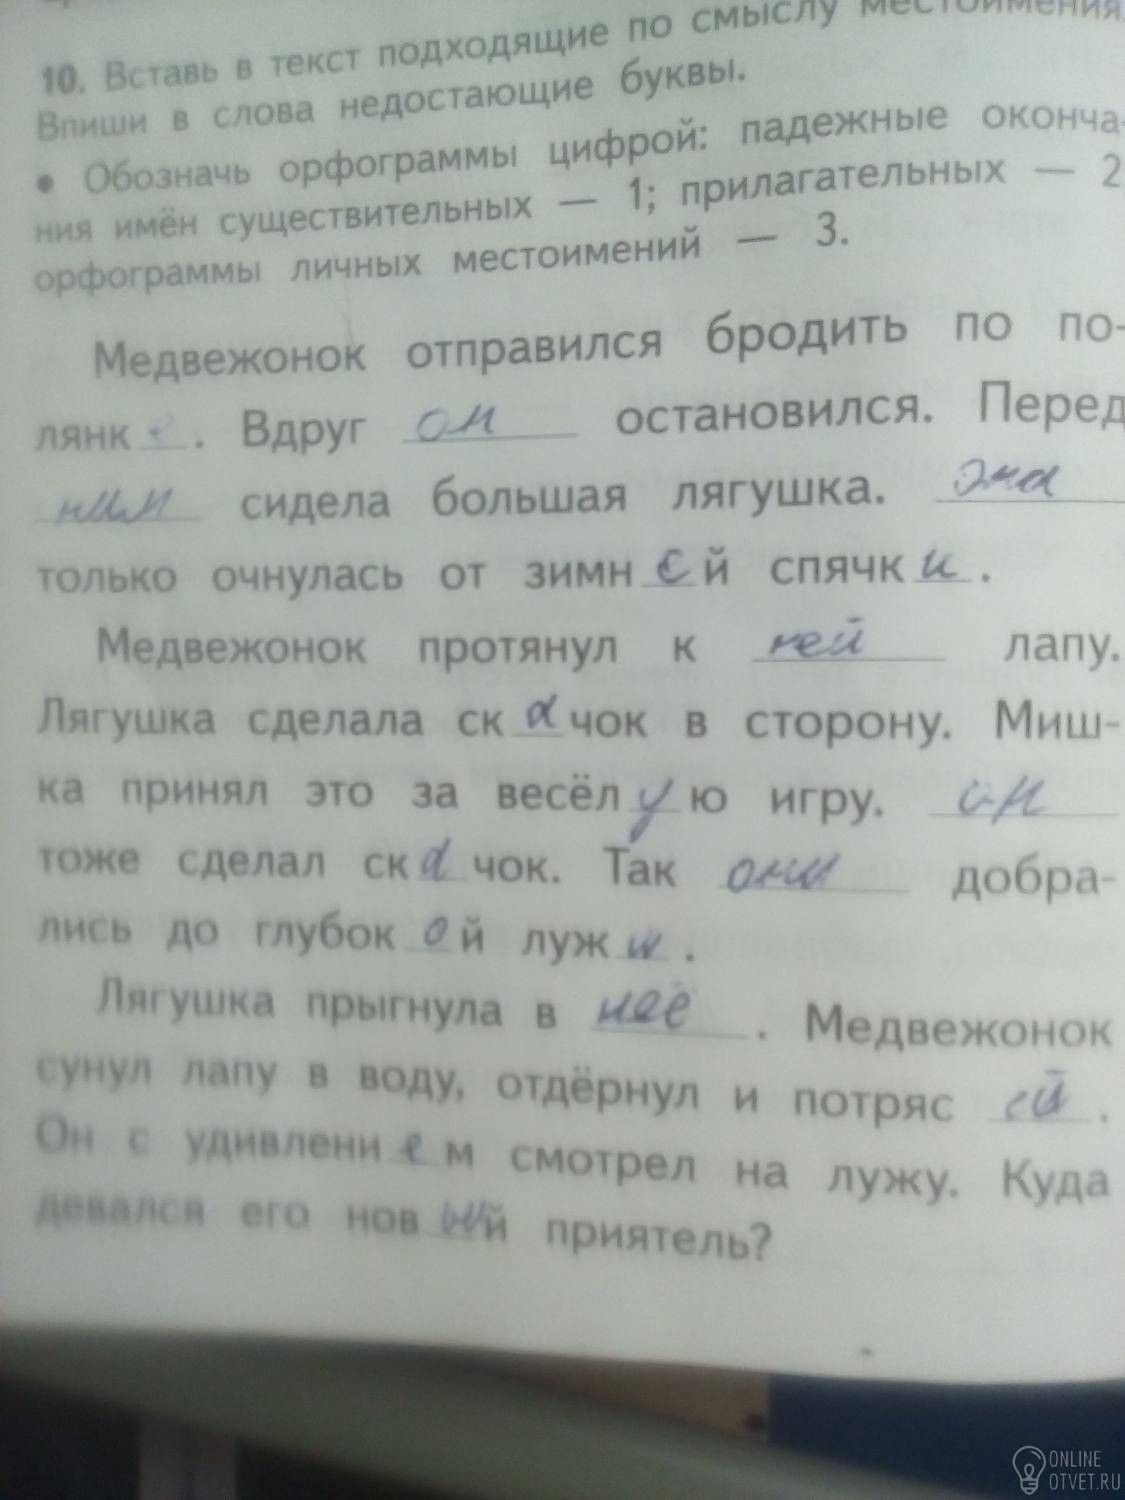 10. Вставь в текст подходящие по смыслу местоимения
Впиши в слова недостающие буквы.
• Обозначь орфограммы цифрой: падежные оконча-
ния имён существительных — 1; прилагательных — 2
орфограммы личных местоимений — 3.
Медвежонок отправился бродить по по-
лянке. Вдруг он остановился. Перед
ним сидела большая лягушка. Она
только очнулась от зимней спячки.
Медвежонок протянул к ней лапу.
Лягушка сделала скачок в сторону. Миш-
ка принял это за весёлую игру. он
тоже сделал скачок. Так они добра-
лись до глубокой лужи.
Лягушка прыгнула в неё. Медвежонок
сунул лапу в воду, отдёрнул и потряс ей.
Он с удивлением смотрел на лужу. Куда
девался его новый приятель?
ONLINE
OTVET.RU